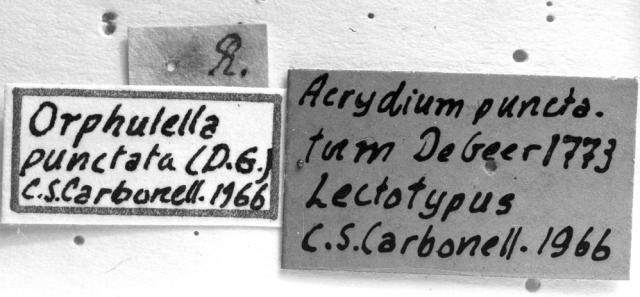 R.
Orphulella
punctata (D.G.)
C.S.Carbonell. 1966
Acrydium puncta.
tum DeGeer 1773
Lectotypus
C.S.Carbonell. 1966